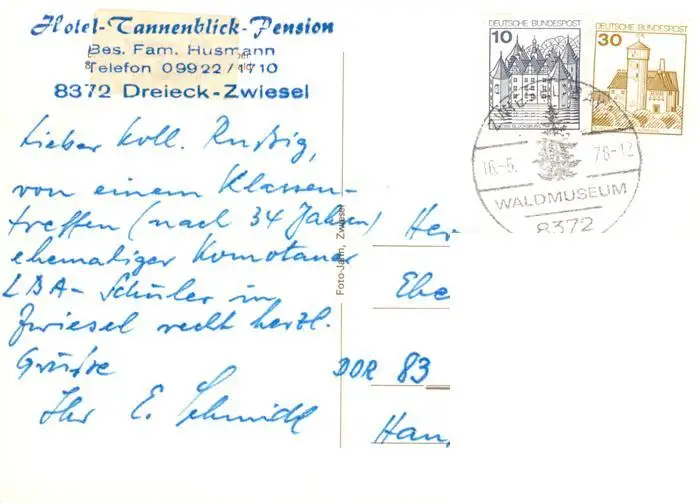 Hotel-Tannenblick-Pension
Bes. Fam. Husmann
Telefon 09922/1710
8372 Dreieck-Zwiesel
Lieber Koll. Rußig,
von einem Klassen-
treffen (nach 34 Jahren)
ehemaliger Komotauer
LBA-Schüler in
Zwiesel recht herzl.
Grüße
Ihr E. Schmidl
Foto-Jahn, Zwiesel
DEUTSCHE BUNDESPOST
10
DEUTSCHE BUNDESPOST
30
16.-5. 78-12
WALDMUSEUM
8372
Hei
Ebe
DDR 83
Han